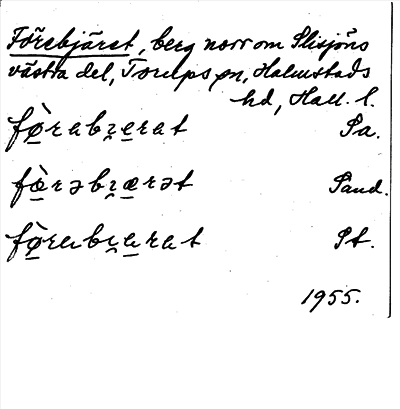 Förebjäret, berg norr om Slisjöns
västra del, Torups sn, Halmstads
hd, Hall. l.
fø̀rabɪ̯erat Sa.
fø̀rəbɪ̯ærət Sand.
fø̀rabɪ̯arat St.
1955.